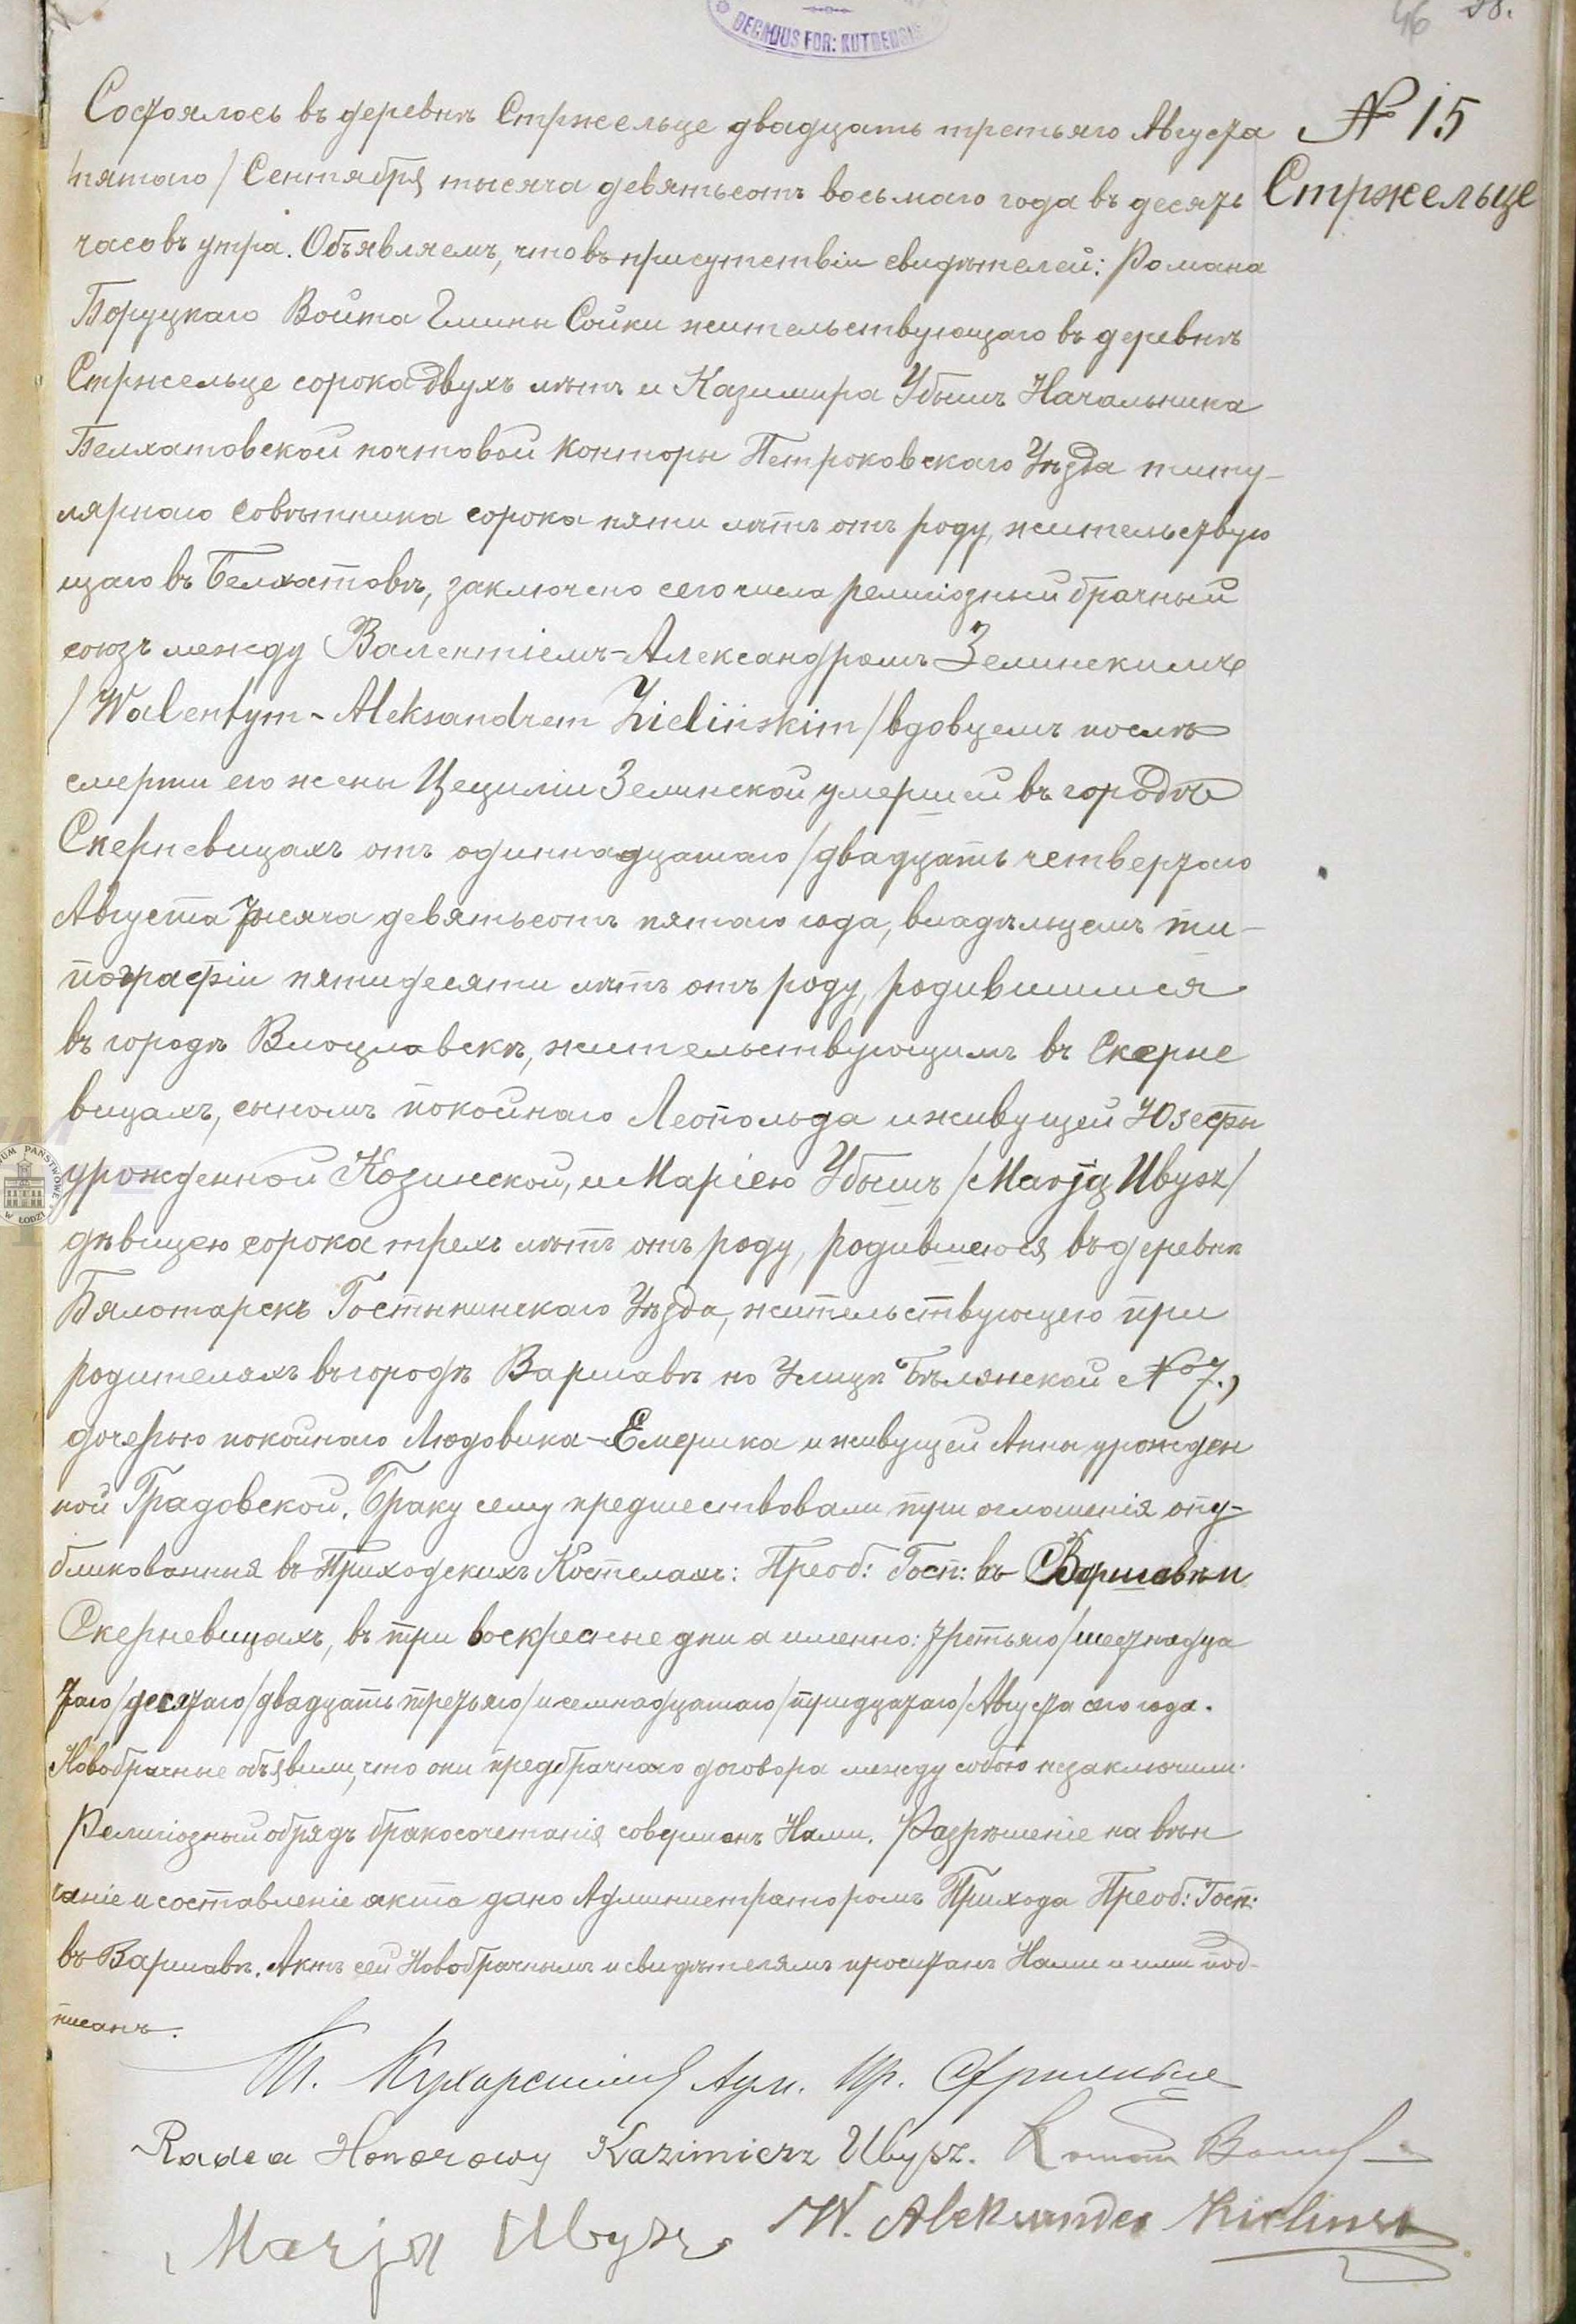 46 28.
DECANUS FOR: KUTNENSIS
№ 15
Стржельце
Состоялось въ деревнѣ Стржельце двадцать третьяго Августа
/пятаго/ Сентября тысяча девятьсотъ восьмаго года въ десять
часовъ утра. Объявляемъ, что въ присутствіи свидѣтелей: Романа
Боруцкаго Войта Гмины Сойки жительствующаго въ деревнѣ
Стржельце сорока двухъ лѣтъ и Казимира Убышъ Начальника
Белхатовской почтовой конторы Петроковскаго Уѣзда титу-
лярнаго совѣтника сорока пяти лѣтъ отъ роду, жительствую
щаго въ Белхатовѣ, заключено сего числа религіозный брачный
союзъ между Валентіемъ-Александромъ Зелинскимъ
/Walentym-Aleksandrem Zielińskim/ вдовцемъ послѣ
смерти его жены Цециліи Зелинской умершей въ городѣ
Скерневицахъ отъ одиннадцатаго /двадцать четвертаго
Августа тысяча девятьсотъ пятаго года, владѣльцемъ ти-
пографіи пятидесяти лѣтъ отъ роду, родившимся
въ городѣ Влоцлавскѣ, жительствующимъ въ Скерне
вицахъ, сыномъ покойнаго Леопольда и живущей Юзефы
урожденной Козинской, и Маріею Убышъ /Marją Ubysz/
дѣвицею сорока трехъ лѣтъ отъ роду, родившеюся въ деревнѣ
Бялотарскъ Гостынинскаго Уѣзда, жительствующею при
родителяхъ въ городѣ Варшавѣ по Улицѣ Бѣлянской № 7.,
дочерью покойнаго Людовика-Емерика и живущей Анны урожден
ной Градовской. Браку сему предшествовали три оглашенія опу-
бликованныя въ Приходскихъ Костелахъ: Преоб: Госп: въ Варшавѣ и
Скерневицахъ, въ три воскресные дни а именно: третьяго /шестнадца
таго/ десятаго /двадцать третьяго/ и семнадцатаго /тридцатаго/ Августа сего года.
Новобрачные объявили, что они предбрачнаго договора между собою незаключили.
Религіозный обрядъ бракосочетанія совершенъ Нами. Разрѣшеніе на вѣн
чаніе и составленіе акта дано Администраторомъ Прихода Преоб: Госп:
въ Варшавѣ. Актъ сей Новобрачнымъ и свидѣтелямъ прочитанъ Нами и ими под-
писанъ.
Кухарскій Адм. Пр. Стржельце
Radca Honorowy Kazimierz Ubysz.
Marja Ubysz W. Aleksander Zieliński